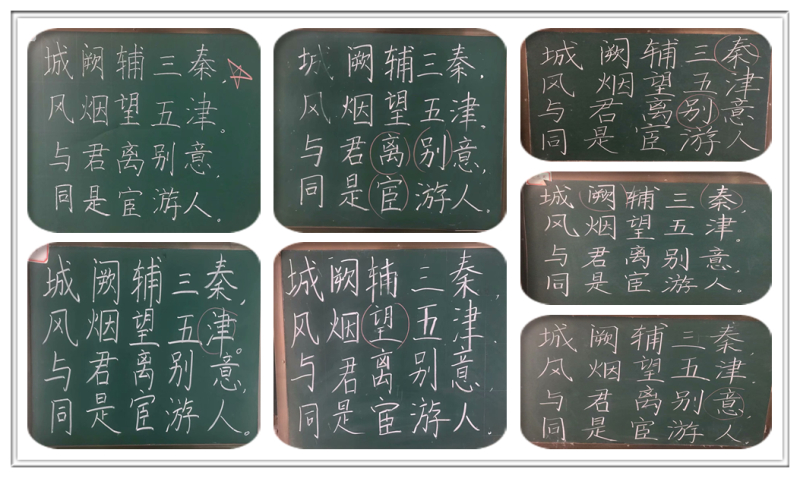 城阙辅三秦，
风烟望五津。
与君离别意，
同是宦游人。
城阙辅三秦，
风烟望五津。
与君离别意，
同是宦游人。
城阙辅三秦
风烟望五津
与君离别意
同是宦游人
城阙辅三秦，
风烟望五津。
与君离别意，
同是宦游人。
城阙辅三秦，
风烟望五津。
与君离别意，
同是宦游人。
城阙辅三秦，
风烟望五津。
与君离别意，
同是宦游人。
城阙辅三秦，
风烟望五津，
与君离别意，
同是宦游人。